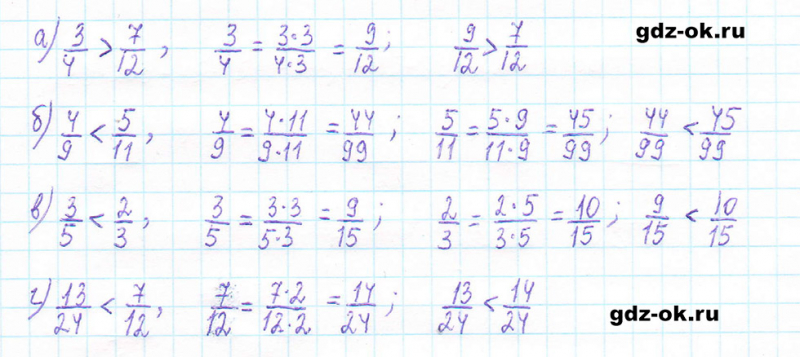 gdz-ok.ru
а) 3/4 > 7/12, 3/4 = 3·3/4·3 = 9/12; 9/12 > 7/12
б) 4/9 < 5/11, 4/9 = 4·11/9·11 = 44/99; 5/11 = 5·9/11·9 = 45/99; 44/99 < 45/99
в) 3/5 < 2/3, 3/5 = 3·3/5·3 = 9/15; 2/3 = 2·5/3·5 = 10/15; 9/15 < 10/15
г) 13/24 < 7/12, 7/12 = 7·2/12·2 = 14/24; 13/24 < 14/24
gdz-ok.ru